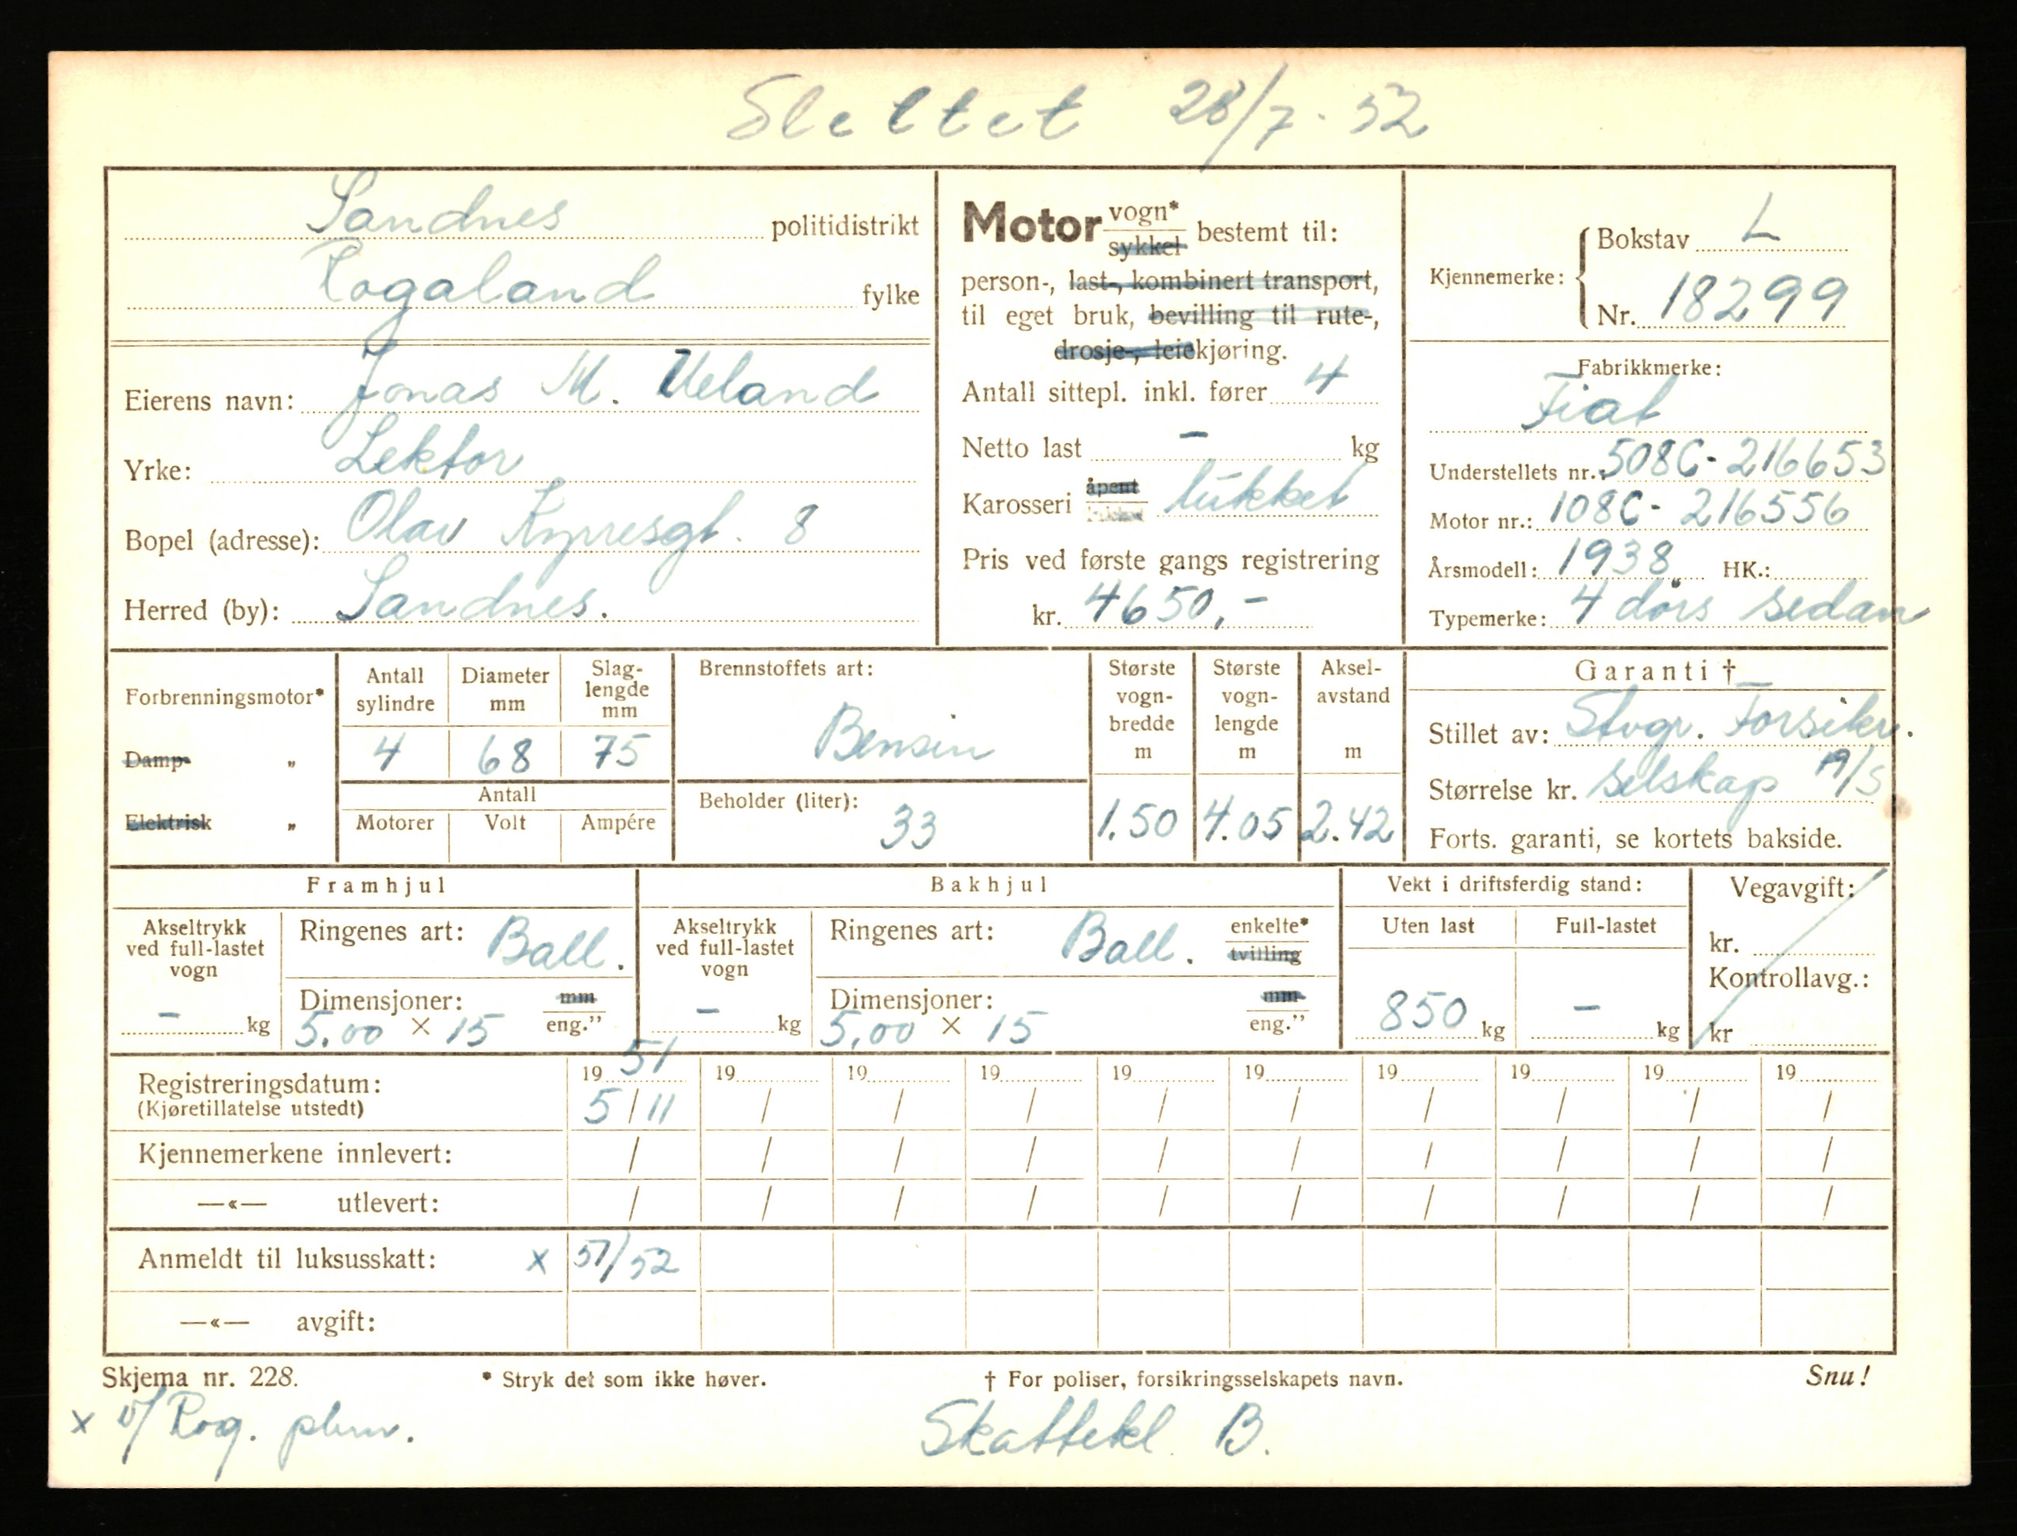 Slettet 28/7.52
Sandnes politidistrikt
Rogaland fylke
Eierens navn: Jonas M. Ueland
Yrke: Lektor
Bopel (adresse): Olav Kyrresgt. 8
Herred (by): Sandnes.
Motor vogn* sykkel bestemt til:
person-, last-, kombinert transport,
til eget bruk, bevilling til rute-,
drosje-, leiekjøring.
Antall sittepl. inkl. fører 4
Netto last – kg
Karosseri åpent lukket lukket
Pris ved første gangs registrering
kr. 4650,-
Kjennemerke: Bokstav L
Nr. 18299
Fabrikkmerke:
Fiat
Understellets nr.: 508C-216653
Motor nr.: 108C-216556
Årsmodell: 1938 HK.:
Typemerke: 4 dørs sedan
Forbrenningsmotor*
Damp- „
Elektrisk „
Antall sylindre Diameter mm Slag-lengde mm
4 68 75
Antall
Motorer Volt Ampére
Brennstoffets art:
Bensin
Beholder (liter):
33
Største vogn-bredde m 1.50
Største vogn-lengde m 4.05
Aksel-avstand m 2.42
Garanti †
Stillet av: Stvgr. Forsikr.
Størrelse kr. selskap A/S
Forts. garanti, se kortets bakside.
Framhjul
Akseltrykk ved full-lastet vogn
– kg
Ringenes art: Ball.
Dimensjoner: mm
5.00 × 15 eng."
Bakhjul
Akseltrykk ved full-lastet vogn
– kg
Ringenes art: Ball. enkelte* tvilling
Dimensjoner: mm
5,00 × 15 eng."
Vekt i driftsferdig stand:
Uten last Full-lastet
850 kg – kg
Vegavgift:
kr.
Kontrollavg.:
kr
Registreringsdatum: 19 51 19 19 19 19 19 19 19 19 19
(Kjøretillatelse utstedt) 5/11 / / / / / / / / /
Kjennemerkene innlevert: / / / / / / / / / /
—«— utlevert: / / / / / / / / / /
Anmeldt til luksusskatt: x 51/52
—«— avgift:
Skjema nr. 228. * Stryk det som ikke høver. † For poliser, forsikringsselskapets navn. Snu!
x v/ Rog. pkm. Skattekl. B.